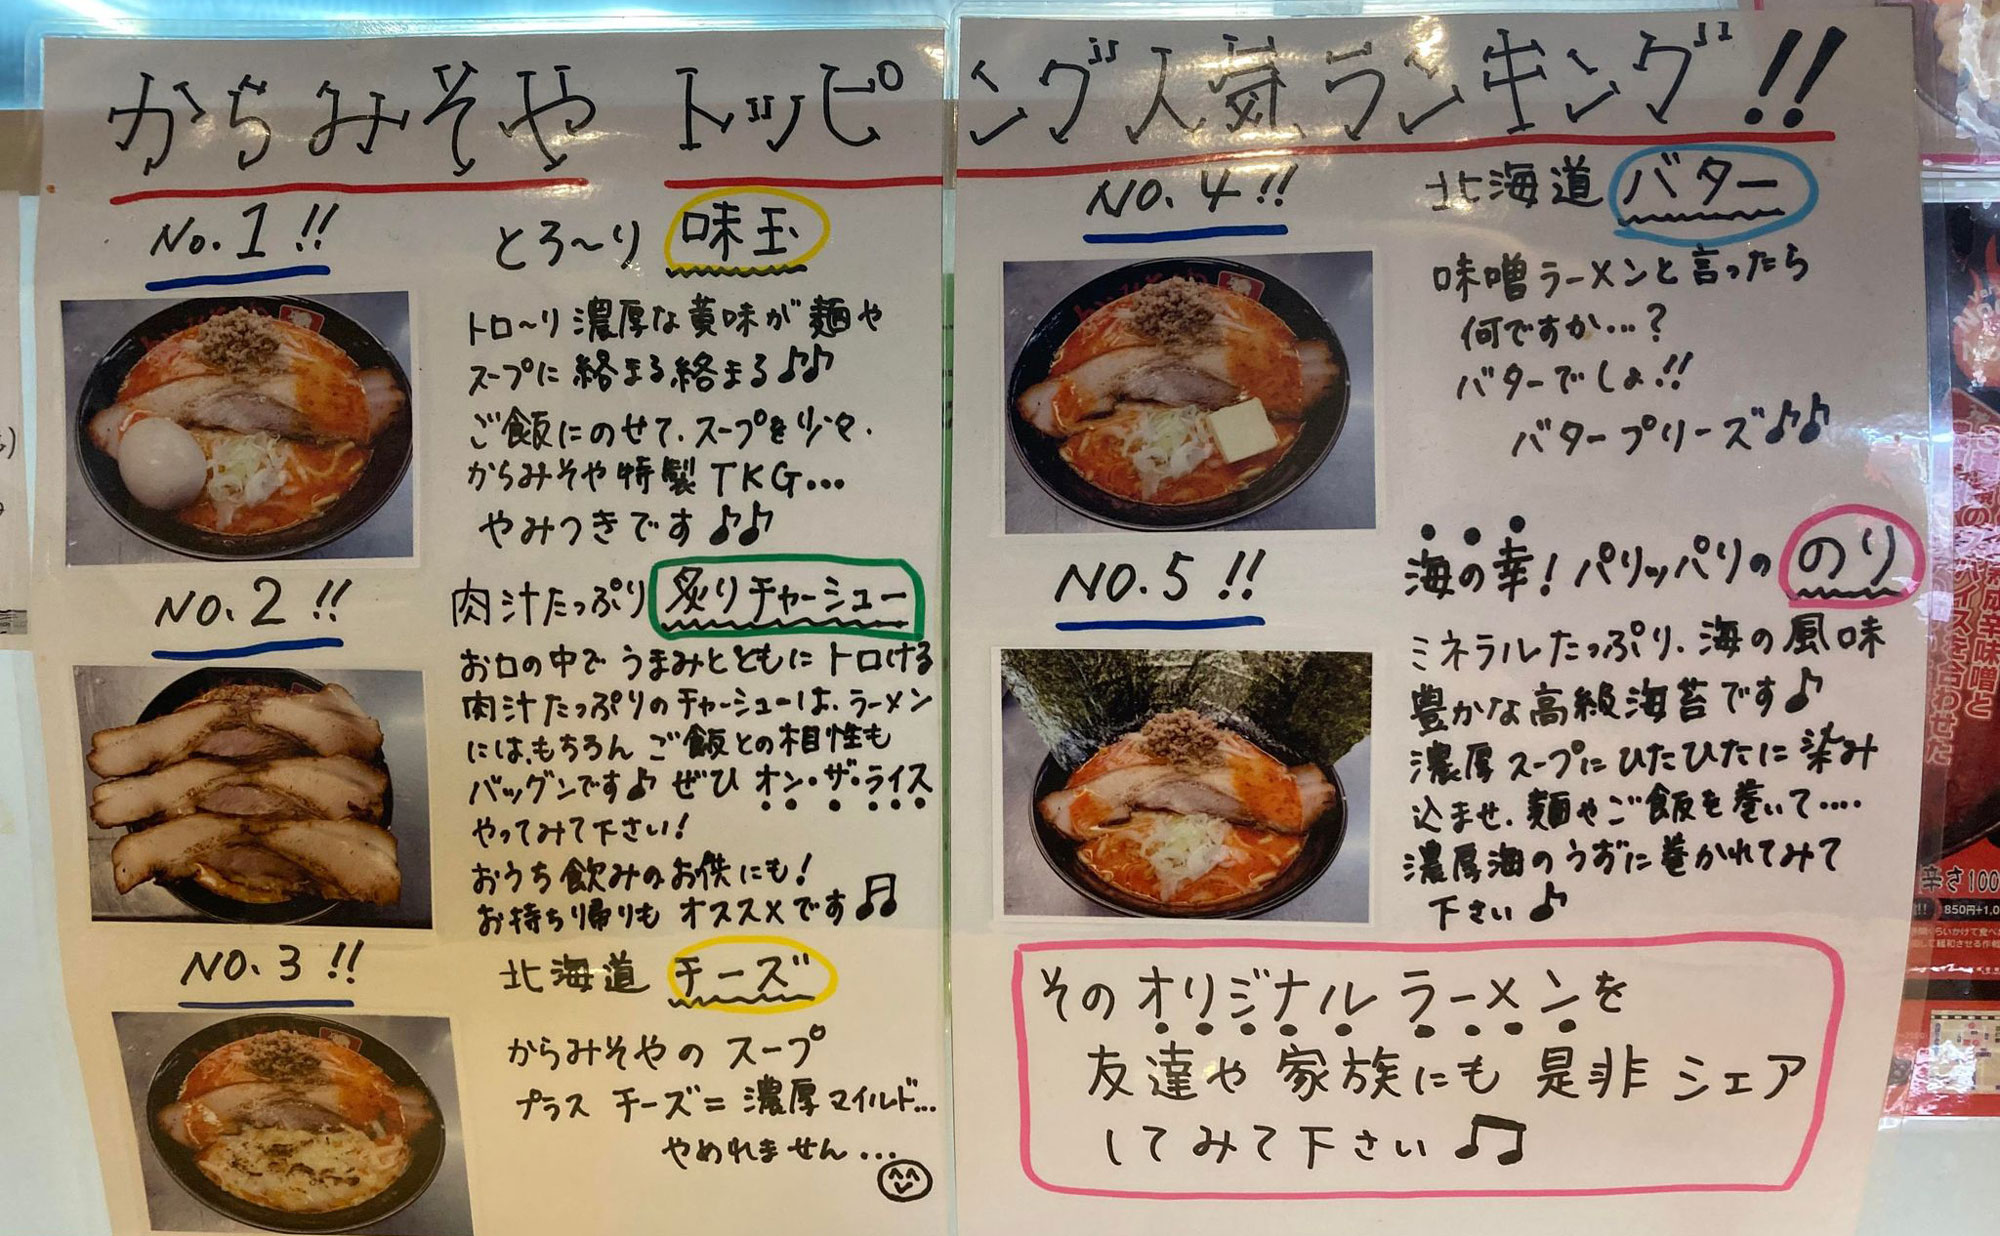 からみそや トッピング人気ランキング!!
No.1!!
とろ〜り 味玉
トロ〜リ濃厚な黄味が麺や
スープに絡まる絡まる♪♪
ご飯にのせて、スープを少々、
からみそや特製TKG...
やみつきです♪♪
NO.2!!
肉汁たっぷり 炙りチャーシュー
お口の中でうまみとともにトロける
肉汁たっぷりのチャーシューは、ラーメン
には、もちろんご飯との相性も
バッグンです♪ ぜひ オン・ザ・ライス
やってみて下さい!
おうち飲みのお供にも!
お持ち帰りも オススメです♫
NO.3!!
北海道 チーズ
からみそやの スープ
プラス チーズ=濃厚マイルド...
やめれません...
NO.4!!
北海道 バター
味噌ラーメンと言ったら
何ですか...?
バターでしょ!!
バタープリーズ♪♪
NO.5!!
海の幸! パリッパリの のり
ミネラルたっぷり、海の風味
豊かな高級海苔です♪
濃厚スープにひたひたに染み
込ませ、麺やご飯を巻いて....
濃厚海のうずに巻かれてみて
下さい♪
そのオリジナル ラーメンを
友達や家族にも 是非 シェア
してみて下さい♫
辛さ100
850円+1,0